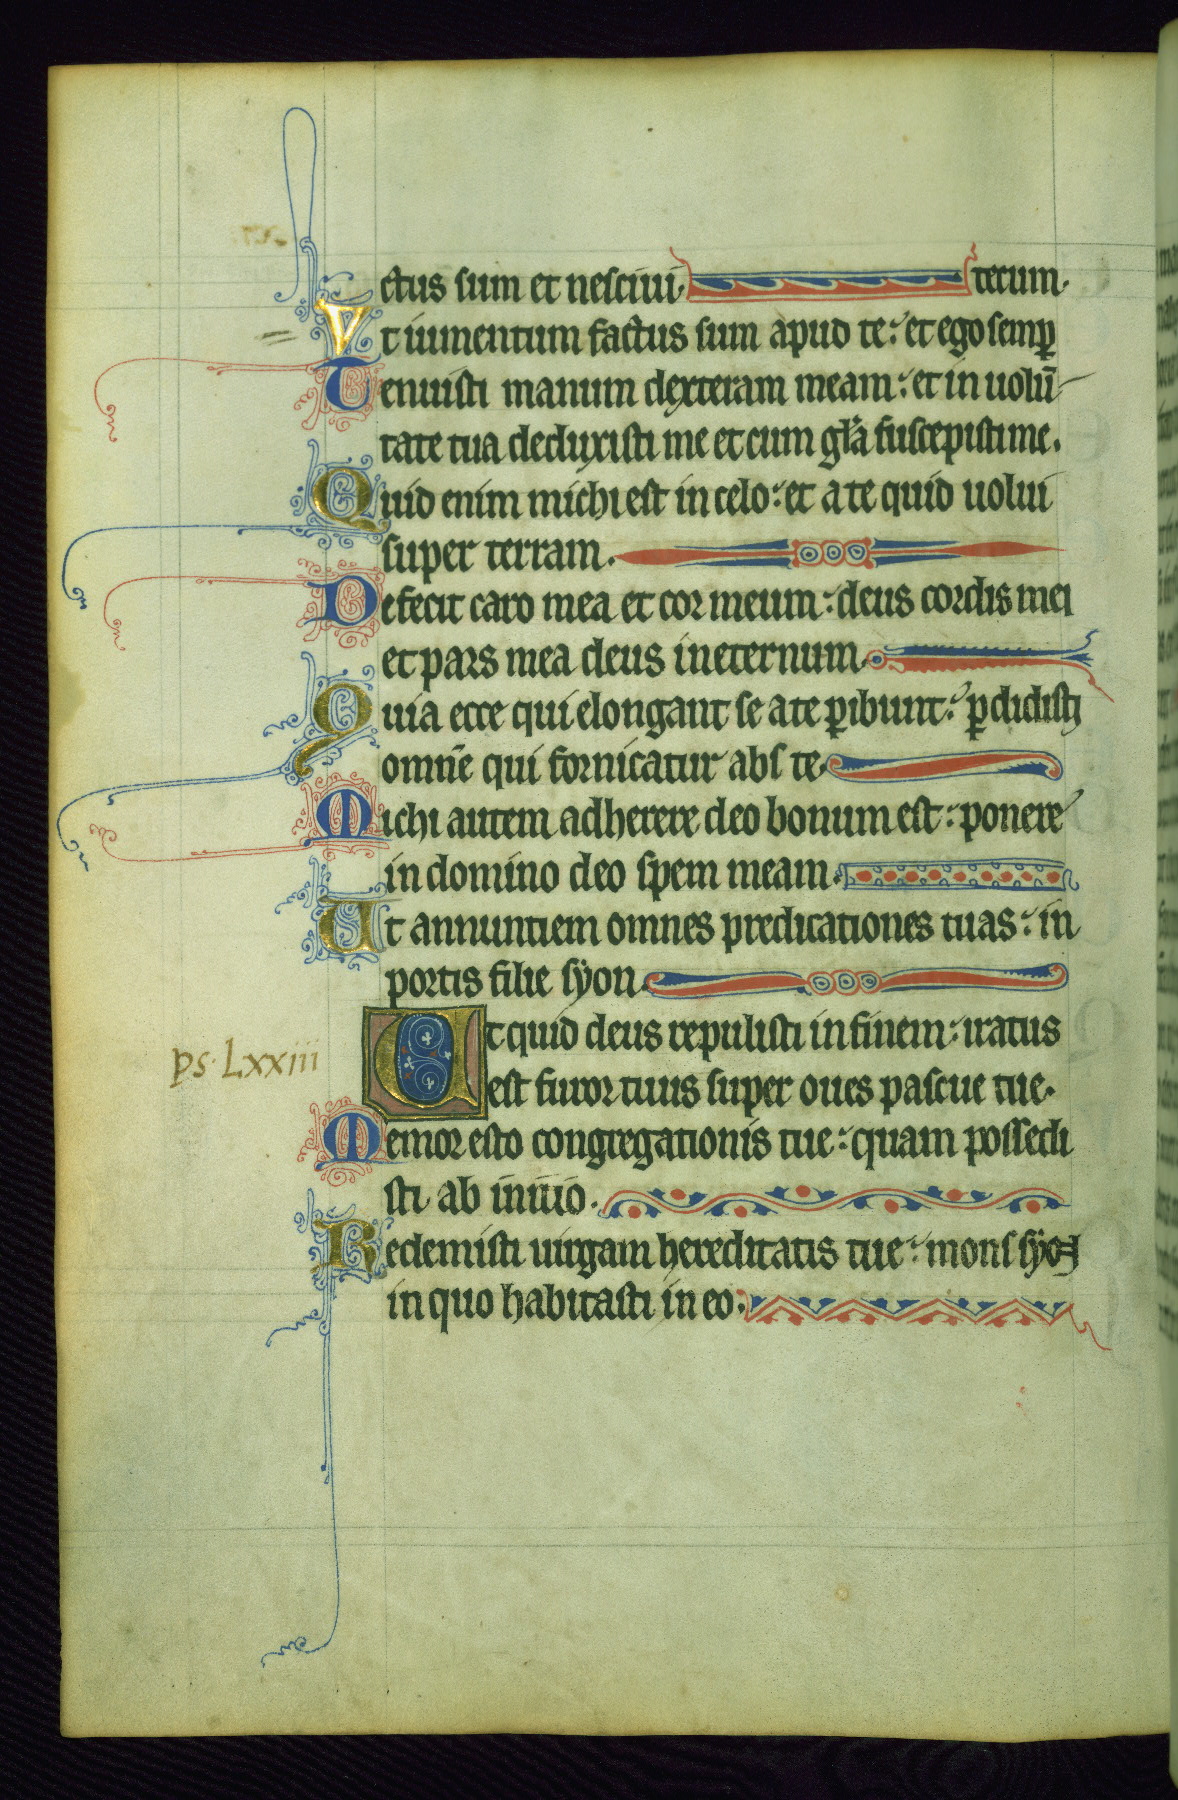 ctus sum et nesciui. tecum.
Vt iumentum factus sum apud te: et ego semꝑ
Tenuisti manum dexteram meam: et in uolū-
tate tua deduxisti me et cum gľa suscepisti me.
Quid enim michi est in celo: et a te quid uolui
super terram.
Defecit caro mea et cor meum: deus cordis mei
et pars mea deus in eternum.
Quia ecce qui elongant se a te ꝑibunt: ꝑdidisti
omnē qui fornicatur abs te.
Michi autem adherere deo bonum est: ponere
in domino deo spem meam.
Ut annuntiem omnes predicationes tuas: in
portis filie syon.
Ut quid deus repulisti in finem: iratus
ps. Lxxiii
est furor tuus super oues pascue tue.
Memor esto congregationis tue: quam possedi
sti ab inicio.
Redemisti uirgam hereditatis tue: mons syon
in quo habitasti in eo.